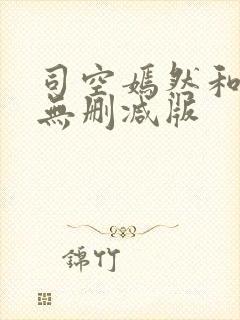 司空嫣然和
無删减版
錦竹